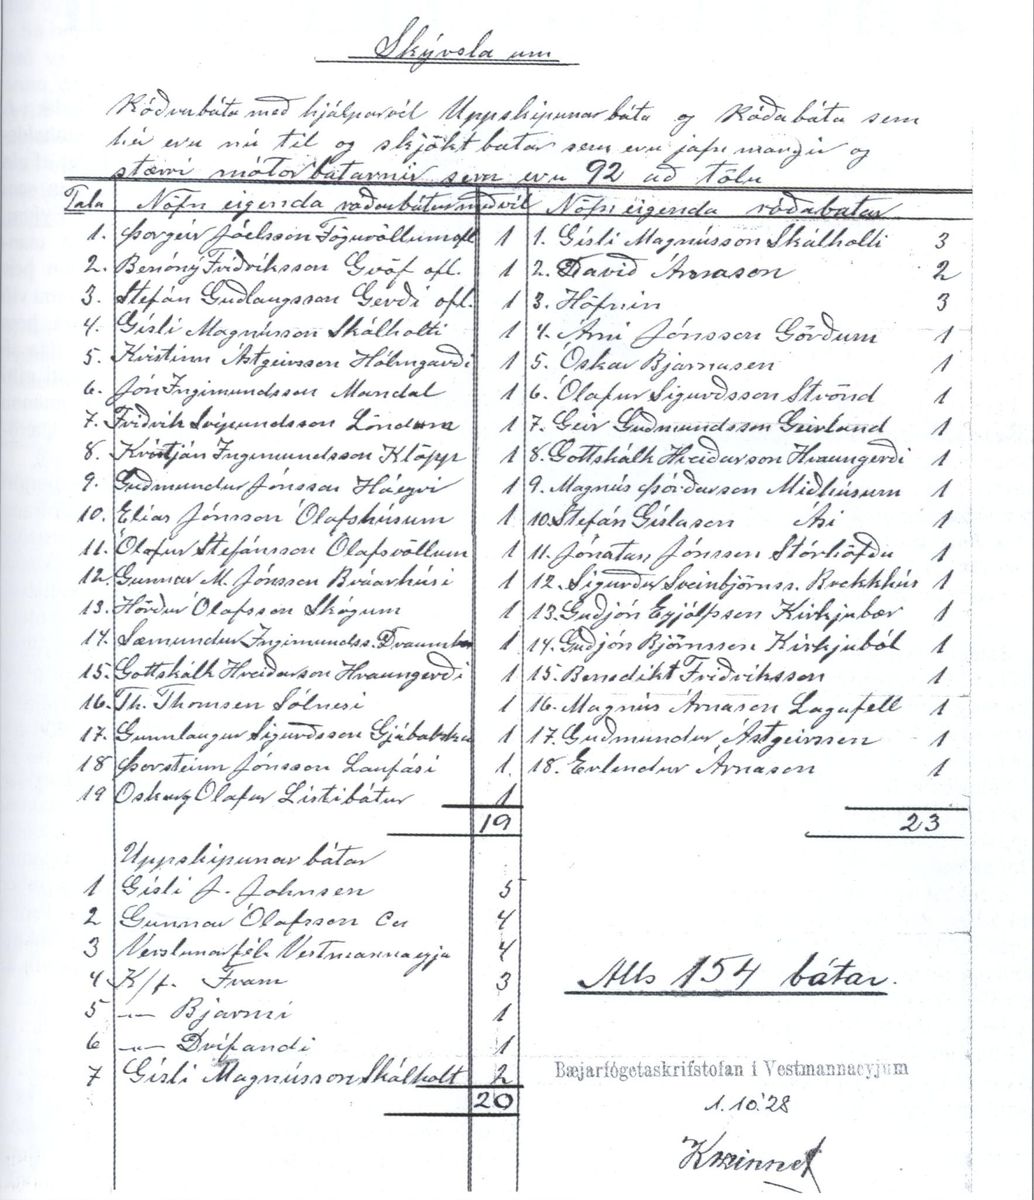 Skýrsla um
Róðrarbáta með hjálparvél Uppskipunarbáta og Róðabáta sem
hér eru nú til og skjöktbátar sem eru jafn margir og
stærri mótorbátarnir sem eru 92 að tölu
Tala Nöfn eigenda róðrarbátur með vél
1. Þorgeir Jóelsson Fögruvöllum ofl 1
2. Benóný Friðriksson Gröf ofl. 1
3. Stefán Guðlaugsson Gerði ofl. 1
4. Gísli Magnússon Skálholti 1
5. Kristinn Ástgeirsson Hólmgarði 1
6. Jón Ingimundsson Mandal 1
7. Friðrik Svipmundsson Löndum 1
8. Kristján Ingimundsson Klöpp 1
9. Guðmundur Jónsson Háeyri 1
10. Elías Jónsson Ólafshúsum 1
11. Ólafur Stefánsson Ólafsvöllum 1
12. Gunnar M. Jónsson Brúarhúsi 1
13. Hörður Ólafsson Skógum 1
14. Sæmundur Ingimundss. 1
15. Gottskálk Hreiðarson Hraungerði 1
16. Th. Thomsen Sólnesi 1
17. Gunnlaugur Sigurðsson Gjábakka 1
18 Þorsteinn Jónsson Laufási 1.
19 Oskar og Olafur Listibátur 1
19
Nöfn eigenda róðabátar
1. Gísli Magnússon Skálholti 3
2. Davið Árnason 2
3. Höfnin 3
4. Árni Jónsson Görðum 1
5. Óskar Bjarnasen 1
6. Ólafur Sigurðsson Strönd 1
7. Geir Guðmundsson Geirland 1
8. Gottskálk Hreiðarson Hraungerði 1
9. Magnús Þórðarson Miðhúsum 1
10. Stefán Gíslason Ási 1
11. Jónatan Jónsson Stórhöfða 1
12. Sigurður Sveinbjörnss. Brekkhús 1
13. Guðjón Eyjólfsson Kirkjubær 1
14. Guðjón Björnsson Kirkjuból 1
15. Benedikt Friðriksson 1
16. Magnús Árnason Lagafell 1
17. Guðmundur Ástgeirssen 1
18. Erlendur Árnason 1
23
Uppskipunarbátar
1 Gísli J. Johnsen 5
2 Gunnar Ólafsson Co 4
3 Verslunarfél. Vestmannaeyja 4
4 K/f. Fram 3
5 — Bjarmi 1
6 — Drífandi 1
7 Gísli Magnússon Skálholt 2
20
Alls 154 bátar.
Bæjarfógetaskrifstofan í Vestmannaeyjum
1. 10.'28